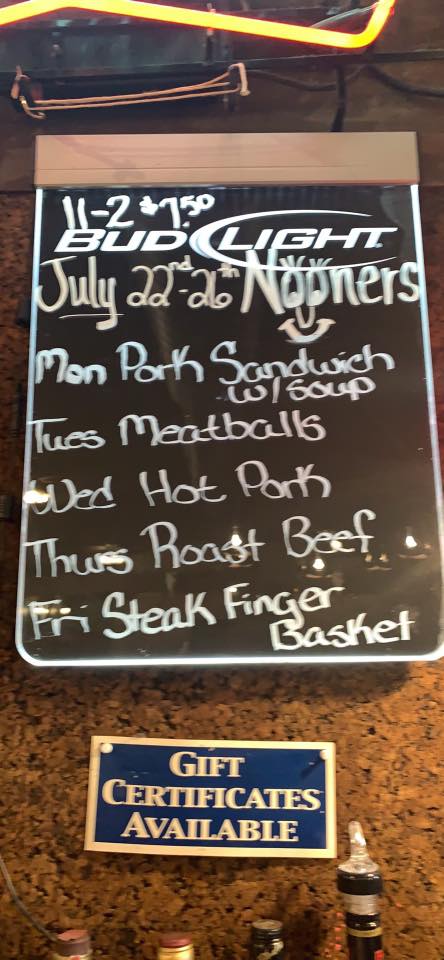 11-2 $7.50
BUD LIGHT
July 22nd-26th Nooners
Mon Pork Sandwich
w/ soup
Tues Meatballs
Wed Hot Pork
Thurs Roast Beef
Fri Steak Finger
Basket
GIFT
CERTIFICATES
AVAILABLE